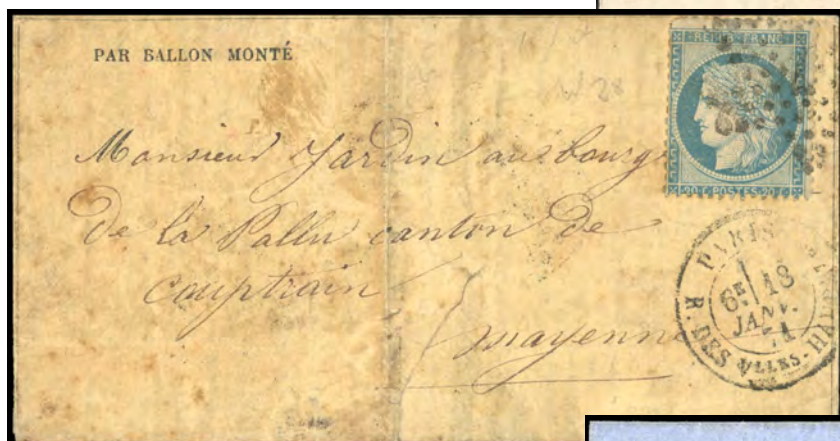 PAR BALLON MONTÉ
REPUB. FRANC.
20 C POSTES 20 C
Monsieur Jardin au bourg
de la Pallu canton de
couptrain
mayenne
PARIS
6E 18
JANV.
71
R. DES VLLES-HAUD